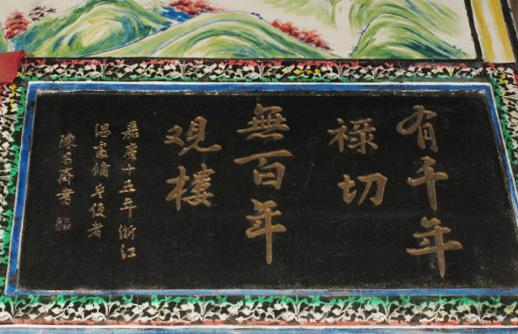 有千年
禄切
無百年
观楼
嘉庆十五年浙江
温處俻兵使者
陳昌齊書